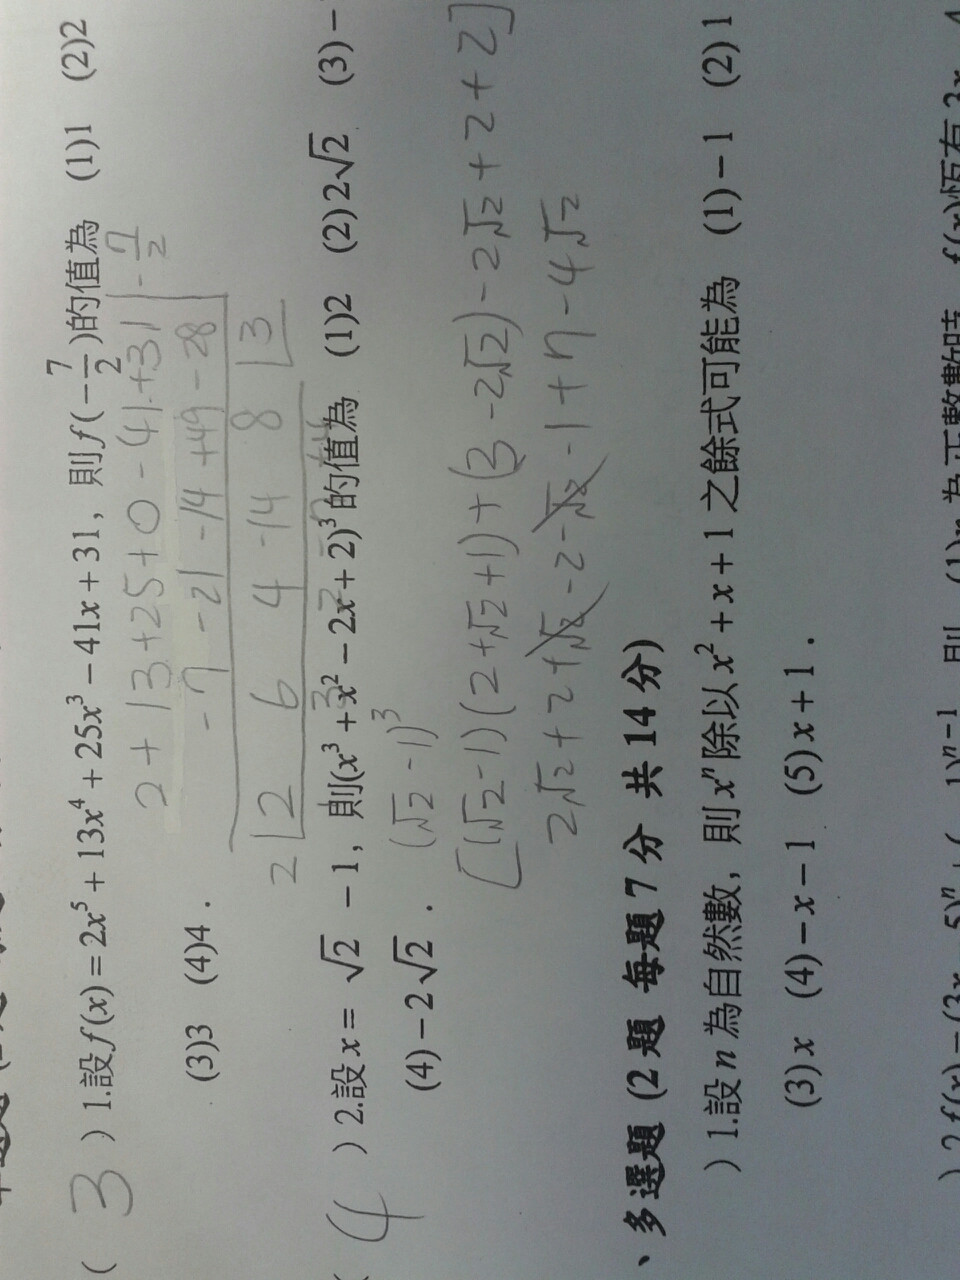 ( 3 ) 1.設f(x)=2x⁵+13x⁴+25x³-41x+31，則f(-7/2)的值為 (1)1 (2)2
2+13+25+0-41+31 | -7/2
(3)3 (4)4．
-7 -21 -14 +49 -28
2 | 2 6 4 -14 8 | 3
( 4 ) 2.設x=√2-1，則(x³+x²-2x+2)³的值為 (1)2 (2)2√2 (3)-
(4)-2√2．
(√2-1)³
[(√2-1)(2+√2+1)+(3-2√2)-2√2+2+2]
2√2+2+√2-2-√2-1+7-4√2
、多選題 (2題 每題7分 共14分)
) 1.設n為自然數，則xⁿ除以x²+x+1之餘式可能為 (1)-1 (2)1
(3)x (4)-x-1 (5)x+1．